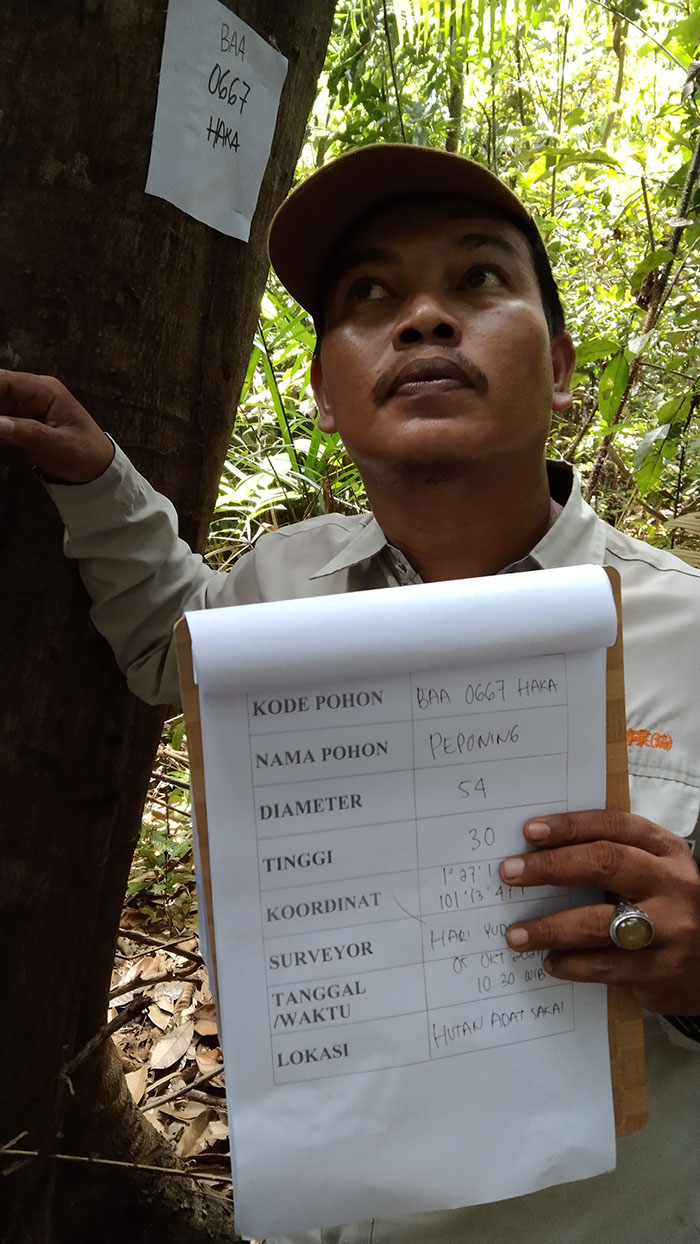 BAA
0667
HAKA
KODE POHON BAA 0667 HAKA
NAMA POHON PEPONING
DIAMETER 54
TINGGI 30
KOORDINAT 1° 27' 1
101° 13' 47
SURVEYOR HARI
TANGGAL 05 OKT
/WAKTU 10 30 WIB
LOKASI HUTAN ADAT SAKAI